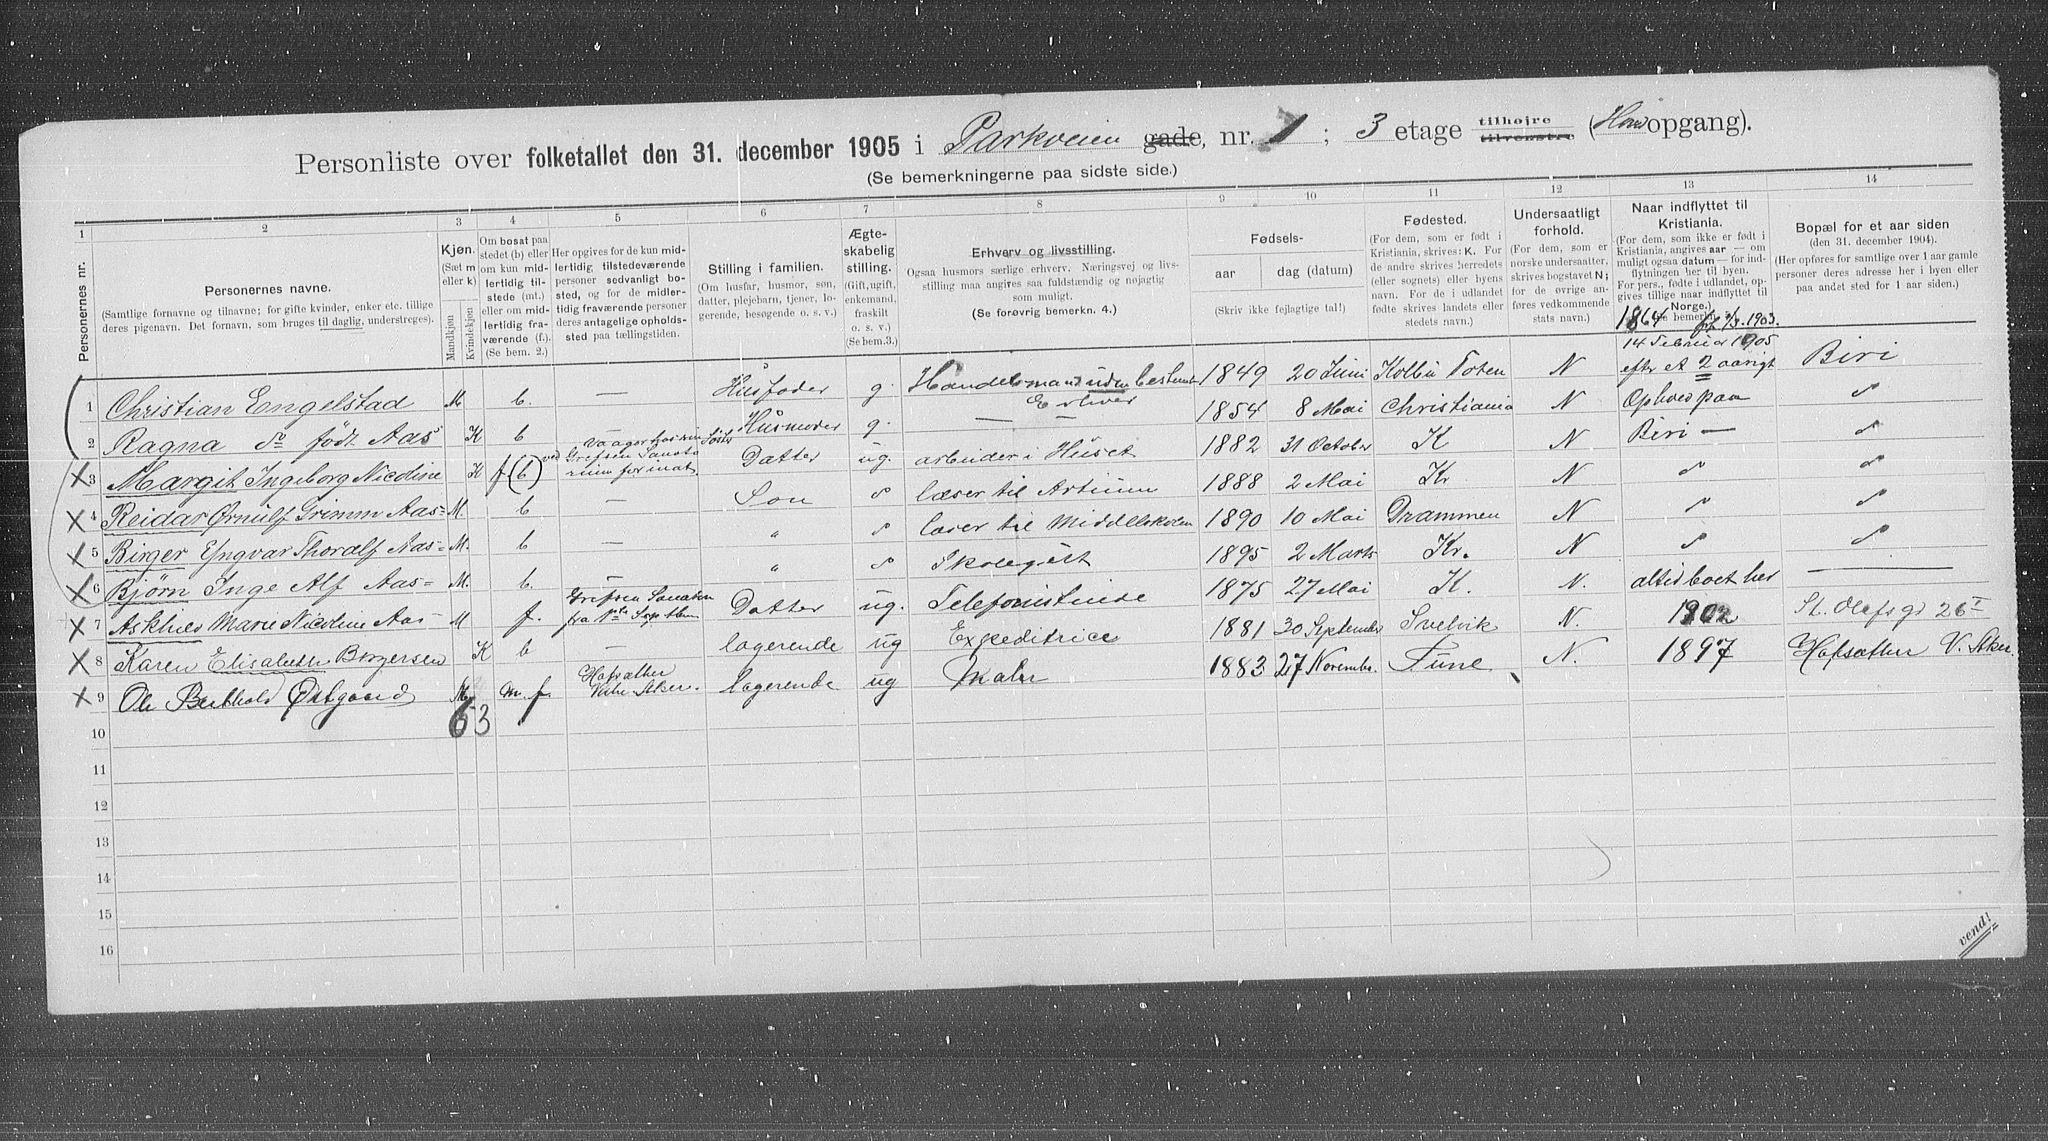 Personliste over folketallet den 31. december 1905 i Parkveien gade, nr. 1 ; 3 etage tilhøjre tilvenstre (Hovopgang).
(Se bemerkningerne paa sidste side.)
1 2 3 4 5 6 7 8 9 10 11 12 13 14
Personernes nr.
Personernes navne.
(Samtlige fornavne og tilnavne; for gifte kvinder, enker etc. tillige deres pigenavn. Det fornavn, som bruges til daglig, understreges).
Kjøn.
(Sæt m eller k)
Mandkjøn
Kvindekjøn
Om bosat paa stedet (b) eller om kun midlertidig tilstede (mt.) eller om midlertidig fraværende (f.). (Se bem. 2.)
Her opgives for de kun midlertidig tilstedeværende personer sedvanligt bosted, og for de midlertidig fraværende personer deres antagelige opholdssted paa tællingstiden.
Stilling i familien.
(Om husfar, husmor, søn, datter, plejebarn, tjener, logerende, besøgende o. s. v.)
Ægteskabelig stilling.
(Gift, ugift, enkemand, fraskilt o. s. v.) (Se bem. 3.)
Erhverv og livsstilling.
Ogsaa husmors særlige erhverv. Næringsvej og livsstilling maa angives saa fuldstændig og nøjagtig som muligt.
(Se forøvrig bemerkn. 4.)
Fødsels-
aar
dag (datum)
(Skriv ikke fejlagtige tal!)
Fødested.
(For dem, som er født i Kristiania, skrives: K. For de andre skrives herredets (eller sognets) eller byens navn. For de i udlandet fødte skrives landets eller stedets navn.)
Undersaatligt forhold.
(For dem, som er norske undersaatter, skrives bogstavet N; for de øvrige angives vedkommende stats navn.)
Naar indflyttet til Kristiania.
(For dem, som ikke er født i Kristiania, angives aar — om muligt ogsaa datum — for indflytningen her til byen. For pers., født i udlandet, opgives tillige naar indflyttet til Norge.)
Bopæl for et aar siden
(den 31. december 1904).
(Her opføres for samtlige over 1 aar gamle personer deres adresse her i byen eller paa andet sted for 1 aar siden.)
1864 1903.
14 Februar 1905
1 Christian Engelstad M b. — Husfader g. Handelsmand uden bestemt Erhver 1849 20 Juni Kolbu Toten N efter et 2 aarigt Biri
2 Ragna do født Aas K b — Husmoder g. — — 1854 8 Mai Christiania N Ophold paa "
3 Margit Ingeborg Nicoline K f (b) ved Grefsen Sanatorium for nat Datter ug. arbeider i Huset 1882 31 October K N Biri — "
4 Reidar Ørnulf Grimm Aas= M. b — Søn " læser til Artium 1888 2 Mai Kr N " "
5 Birger Yngvar Thoralf Aas= M. b — " " læser til Middelskolen 1890 10 Mai Drammen N " "
6 Bjørn Inge Alf Aas= M. b. — " " Skolegut 1895 2 Marts Kr. N " "
7 Askhild Marie Nicoline Aas= M f. Grefsen Sanatorium fra Datter ug. Telefonistinde 1875 27 Mai K. N. altid boet her —
8 Karen Elisabeth Borgersen K b — logerende ug Expeditrice 1881 30 September Svelvik N. 1902 St. Olafsgd 26 I
9 Ole Berthold Østgaard M m f. Hofsæther Vestre Aker. logerende ug Maler 1883 27 Novembr. Tune N. 1897 Hofsæther V. Aker.
6 3
10
11
12
13
14
15
16
vend!